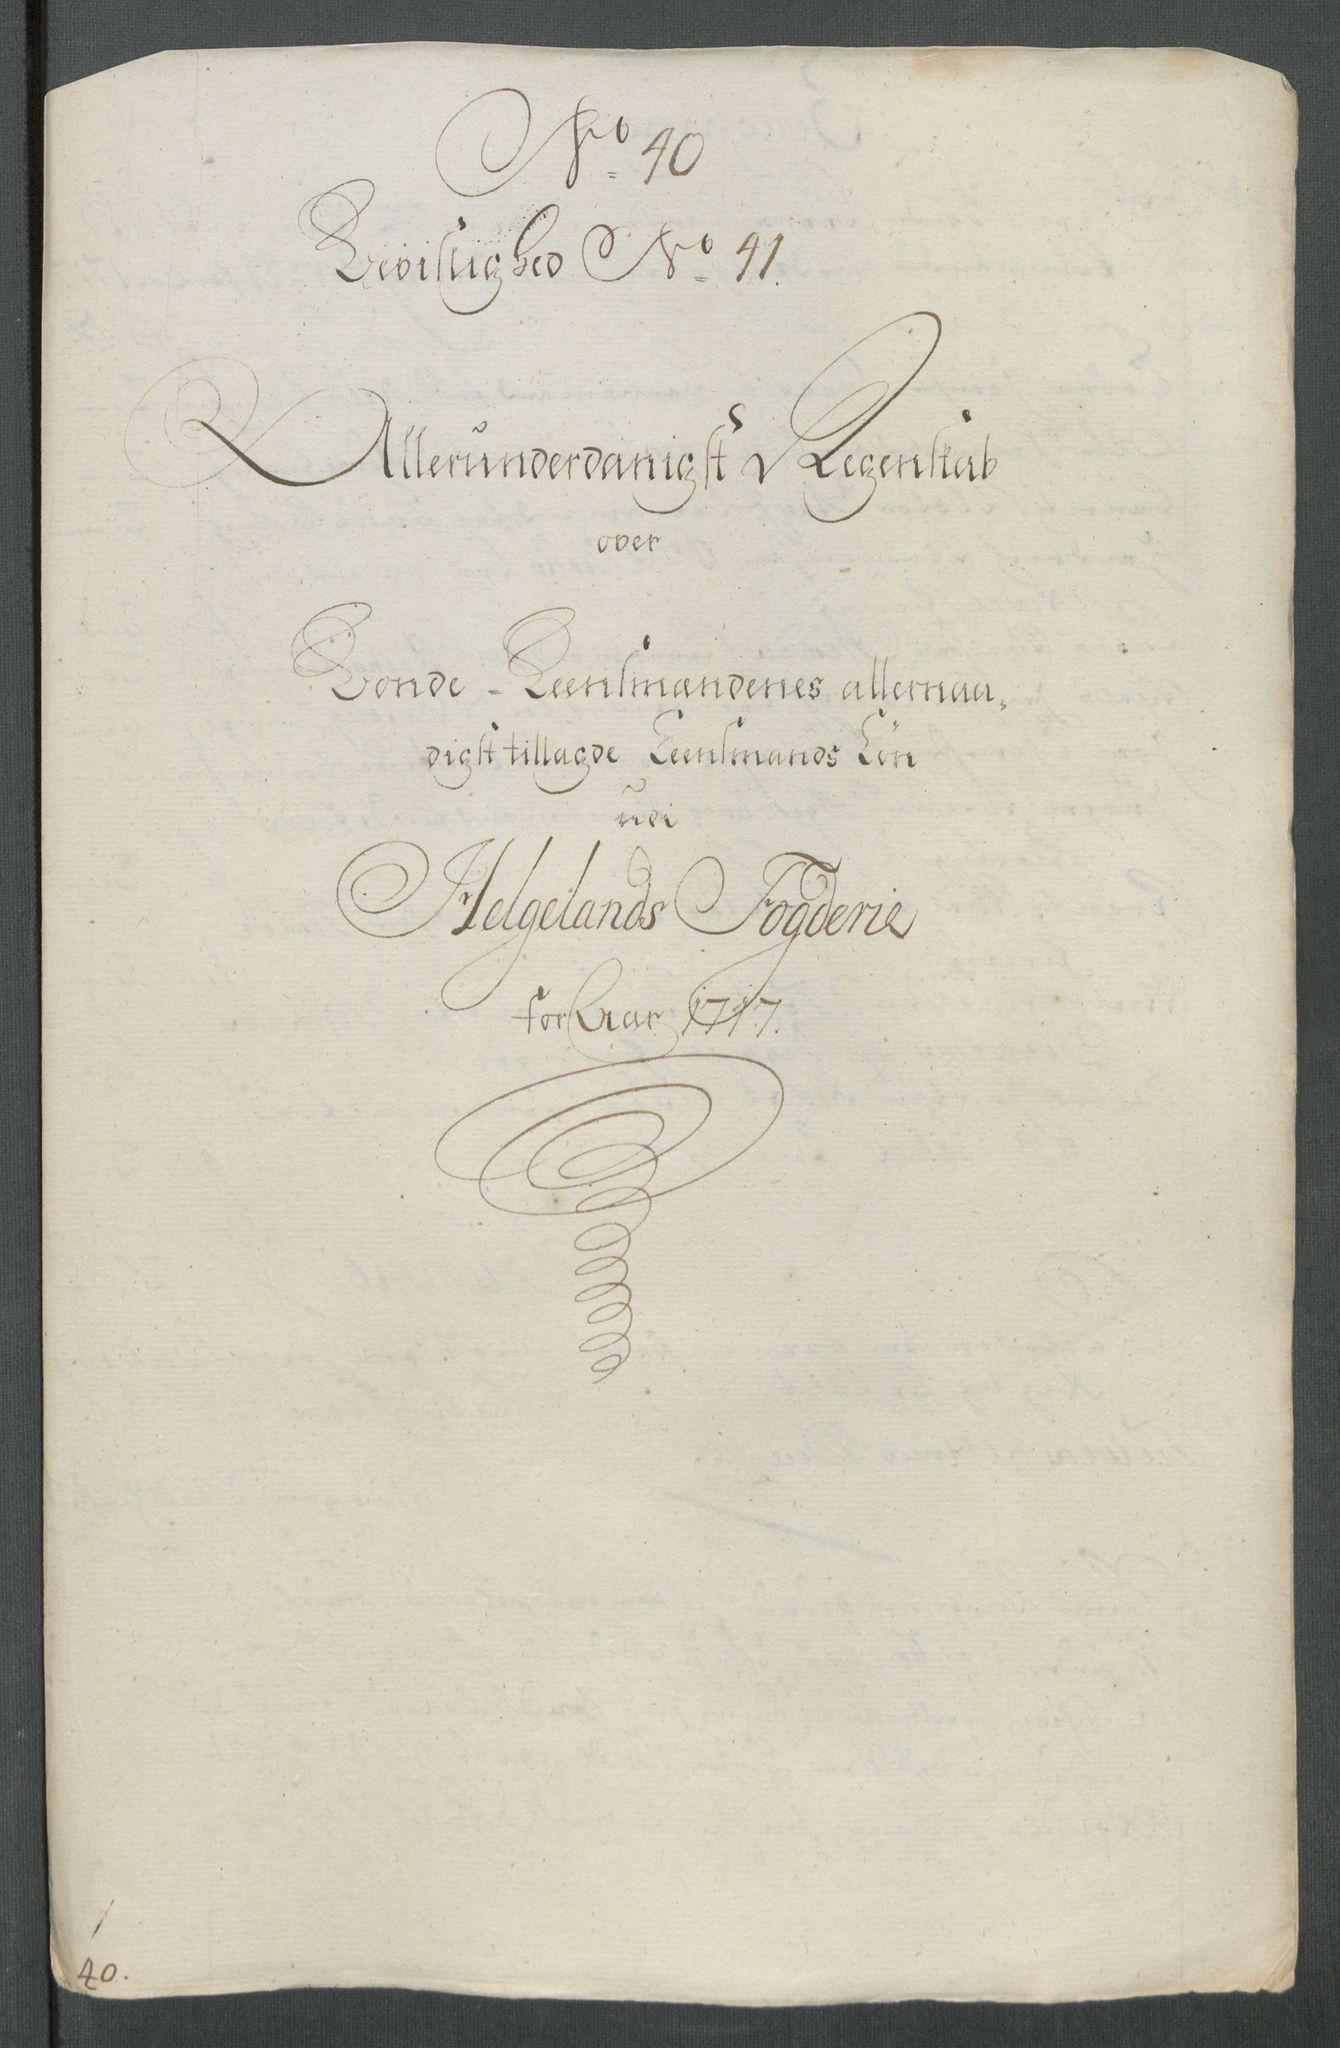 No. 40
Bevislighed No. 41.
Allerunderdanigst Regenskab
over
Bonde-Leensmændenes allernaa-
digst tillagde Leensmands Lön
udi
Helgelands Fogderie
for Aar 1717.
1
40.